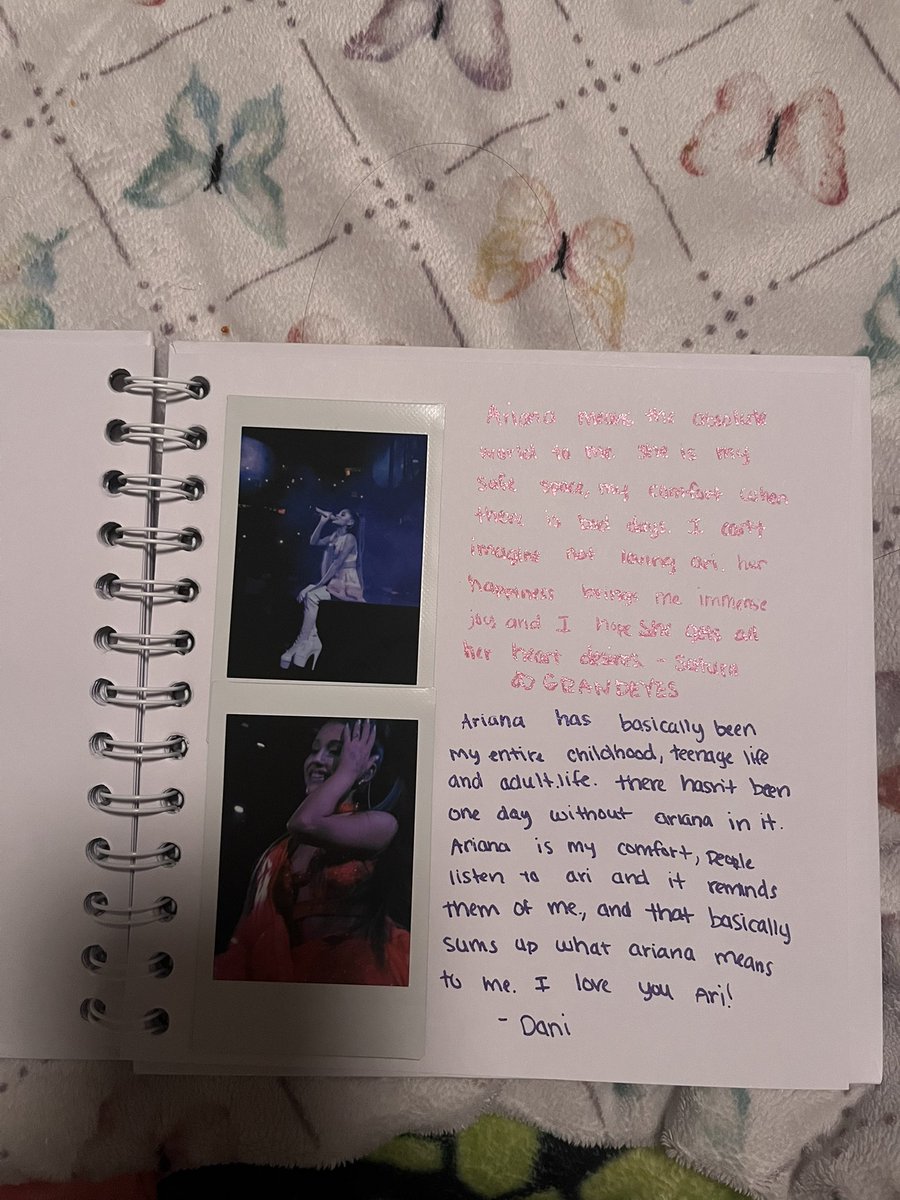 Ariana means the absolute
world to me. She is my
safe space, my comfort when
there is bad days. I can't
imagine not loving ari. her
happiness brings me immense
joy and I hope she gets all
her heart desires -
@GRANDEYES
Ariana has basically been
my entire childhood, teenage life
and adult.life. there hasn't been
one day without ariana in it.
Ariana is my comfort, People
listen to ari and it reminds
them of me., and that basically
sums up what ariana means
to me. I love you Ari!
- Dani